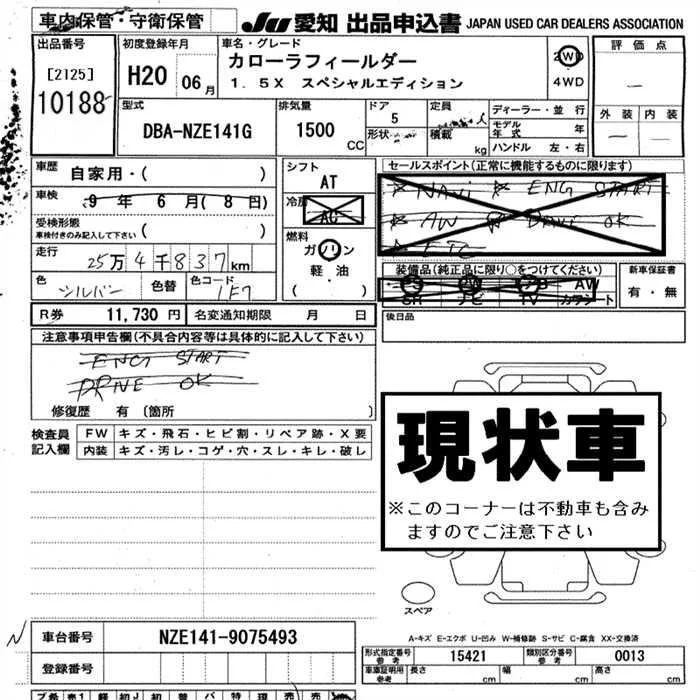 車内保管・守衛保管
JU 愛知 出品申込書 JAPAN USED CAR DEALERS ASSOCIATION
出品番号
[2125]
10188
初度登録年月
H20 06月
車名・グレード
カローラフィールダー
1.5X スペシャルエディション
2WD
4WD
評価点
外装 内装
型式
DBA-NZE141G
排気量
1500 CC
ドア
5
形状
定員
人
積載
kg
ディーラー・並行
モデル年式 年
ハンドル 左・右
車歴 自家用・( )
車検 9年 6月(8日)
受検形態
車検付きのみ記入して下さい ( )
走行 25万4千837km
色 シルバー 色替 色コード 1F7
シフト
AT
冷房
AC
燃料
ガソリン
軽・油
( )
セールスポイント(正常に機能するものに限ります)
☆NAVI ☆ ENG START
☆AW ☆ DRIVE OK
☆ETC
装備品(純正品に限り○をつけてください)
PS PW AB AW
SR ナビ TV カワシート
新車保証書
有・無
R券 11,730円 名変通知期限 月 日
後日品
注意事項申告欄(不具合内容等は具体的に記入して下さい)
ENG START
DRIVE OK
修復歴 有(箇所 )
検査員記入欄
FW キズ・飛石・ヒビ割・リペア跡・X要
内装 キズ・汚レ・コゲ・穴・スレ・キレ・破レ
現状車
※このコーナーは不動車も含み
ますのでご注意下さい
スペア
A-キズ E-エクボ U-凹み W-補修跡 S-サビ C-腐食 XX-交換済
N
車台番号 NZE141-9075493
登録番号
形式指定番号 参考 15421 類別区分番号 参考 0013
車庫証明用 参考 長さ cm 幅 cm 高さ cm